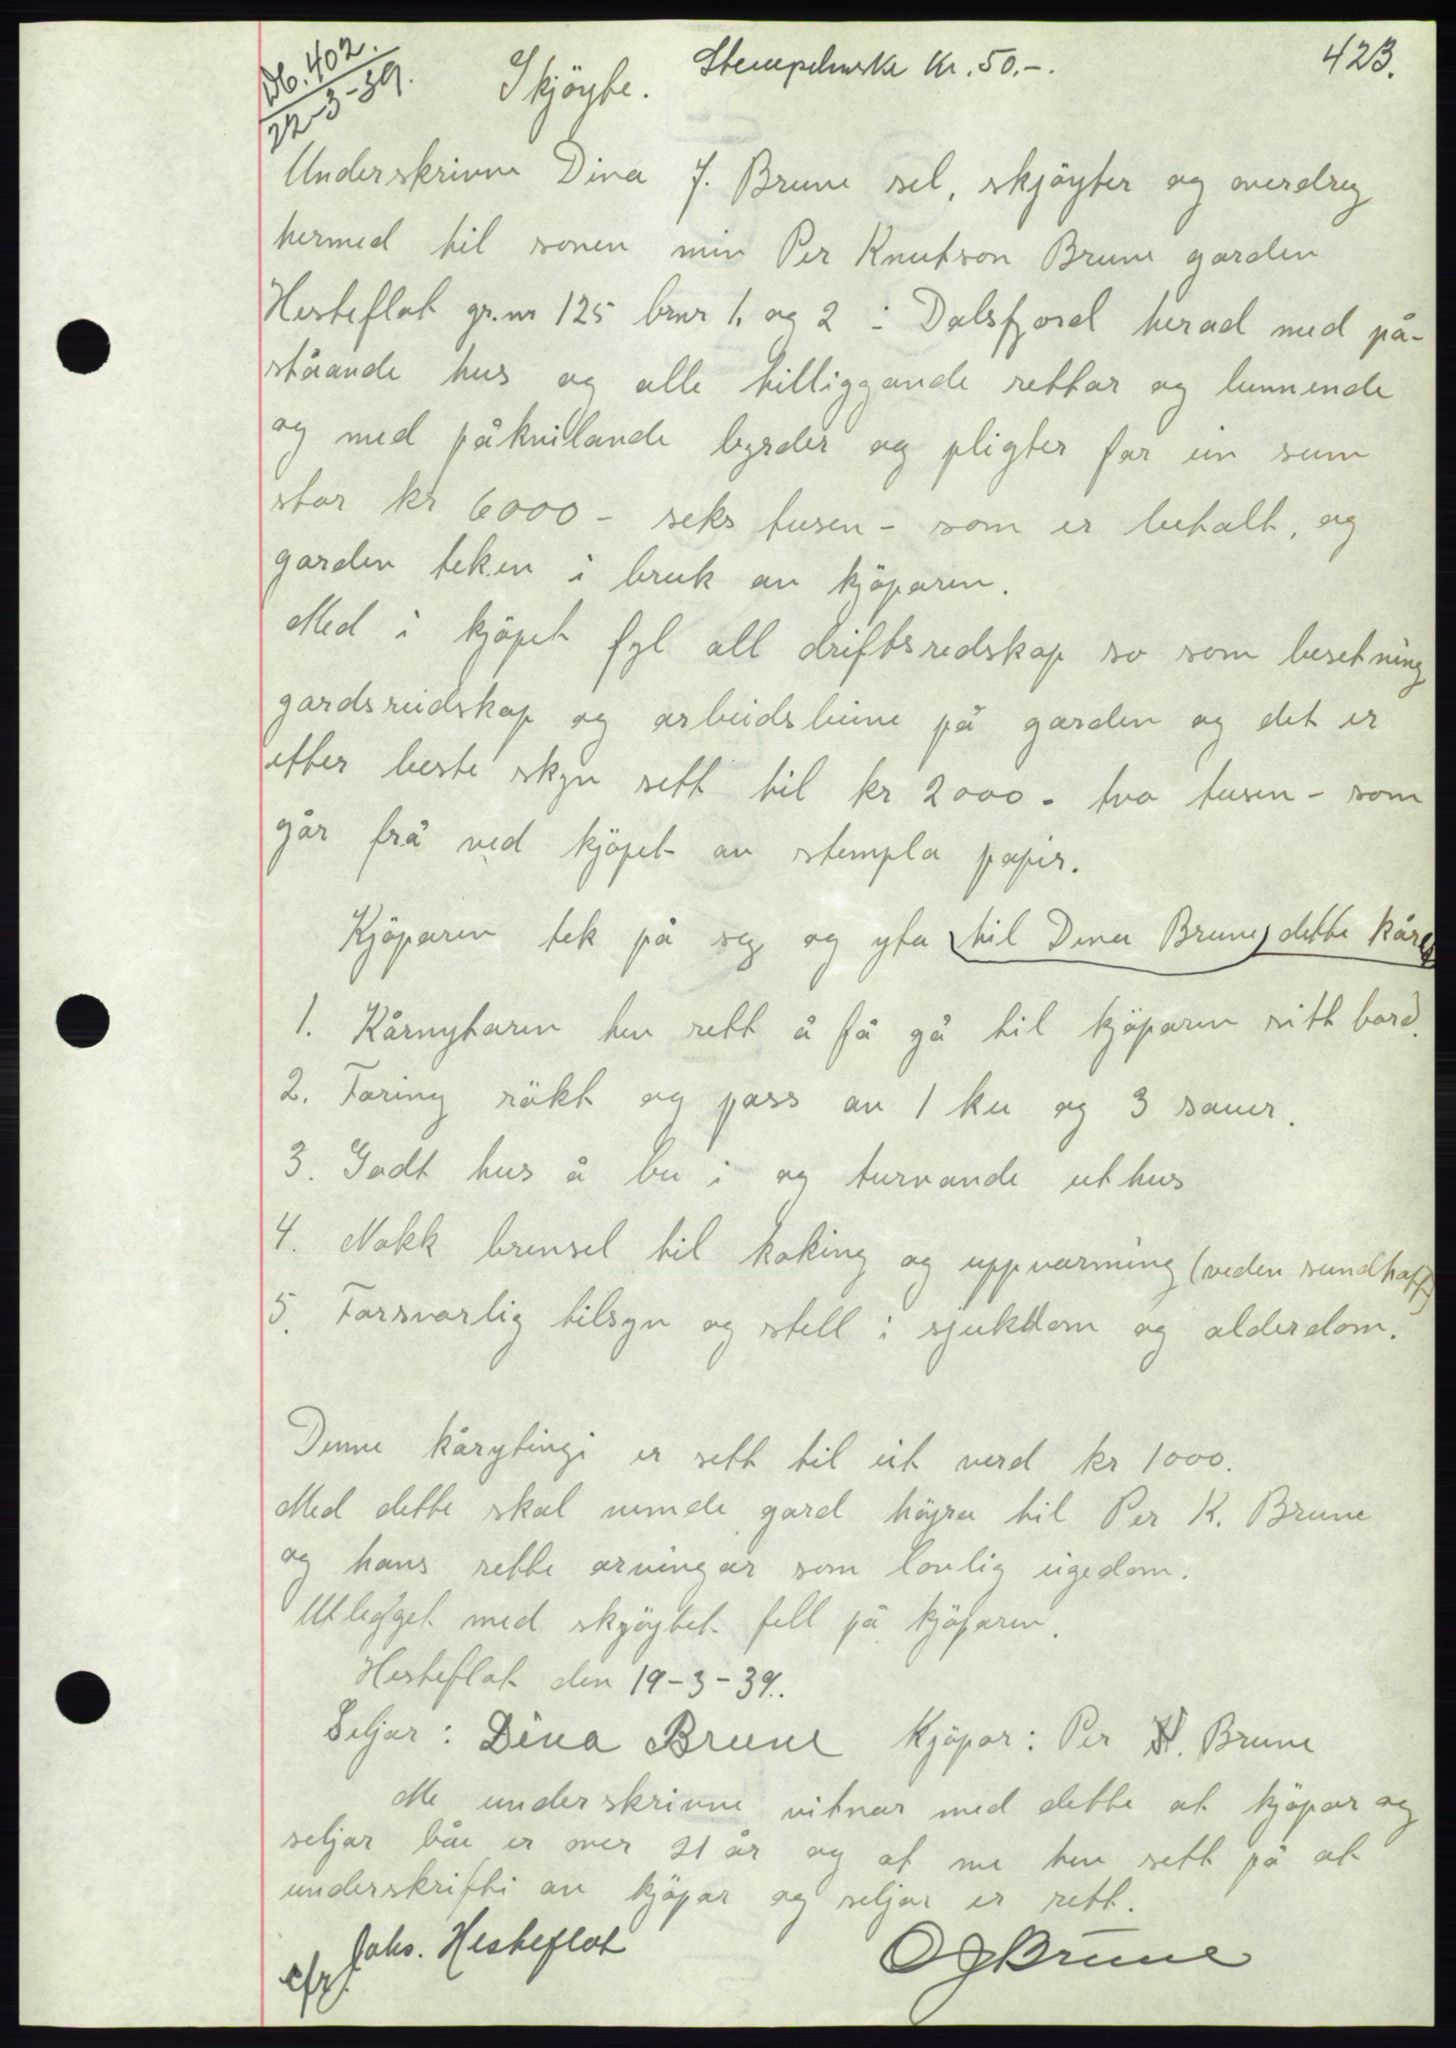 Db. 402.
22-3-39.
Stempelmerke kr. 50.-.
423.
Skjöyte.
Underskrivne Dina J. Brune sel, skjöyter og overdreg
hermed til sonen min Per Knutson Brune garden
Hesteflot gr.nr 125 brnr 1. og 2 i Dalsfjord herad med på-
ståande hus og alle tilliggande rettar og lunnende
og med påkvilande byrder og pligter for ein sum
stor kr 6000 - seks tusen - som er betalt, og
garden teken i bruk av kjöparen.
Med i kjöpet fyl all driftsredskap so som besetning
gardsreidskap og arbeidsleine på garden og det er
etter beste skyn sett til kr 2000 - tvo tusen - som
går frå ved kjöpet av stempla papir.
Kjöparen tek på seg og yta til Dina Brune dette kåret
1. Kårnytaren hev rett å få gå til kjöparen sitt bord.
2. Foring rökt og pass av 1 ku og 3 sauer.
3. Godt hus å bu i og turvande uthus
4. Nokk brensel til koking og uppvarming (veden sundhogt)
5. Forsvarlig tilsyn og stell i sjukdom og alderdom.
Denne kårytingi er sett til eit verd kr 1000.
Med dette skal nemde gard höyra til Per K. Brune
og hans rette arvingar som lovlig eigedom.
Utlegget med skjöytet fell på kjöparen.
Hesteflot den 19-3-39.
Seljar: Dina Brune Kjöpar: Per K. Brune
Me underskrivne vitnar med dette at kjöpar og
seljar båe er over 21 år og at me hev sett på at
underskrifti av kjöpar og seljar er rett.
Johs. Hesteflot
O J Brune